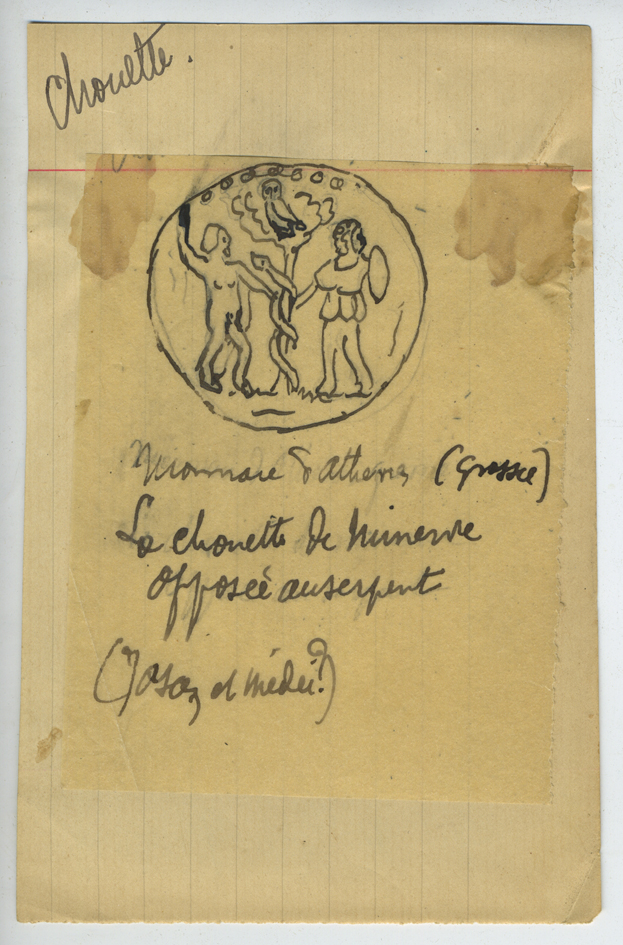 Chouette.
Monnaie d'Athènes (grossie)
La chouette de Minerve
opposée au serpent
(Jason et Médée?)